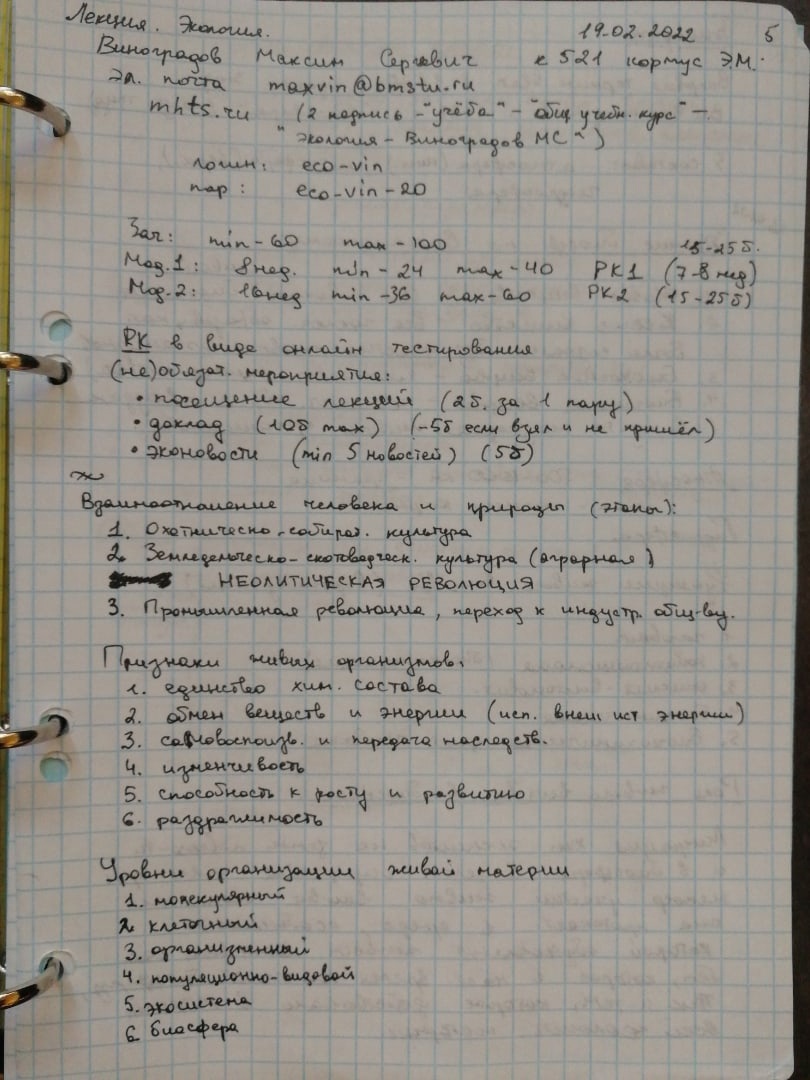 Лекция. Экология. 19.02.2022 5
Виноградов Максим Сергевич к 521 корпус Э.М.
Эл. почта maxvin@bmstu.ru
mhts.ru (2 надпись - "учёба" - "общ учебн. курс" -
"экология - Виноградов МС")
логин: eco-vin
пар: eco-vin-20
Зач: min-60 max-100 15-25б.
Мод.1: 8нед. min-24 max-40 РК1 (7-8 нед)
Мод.2: 16нед min-36 max-60 РК2 (15-25б)
РК в виде онлайн тестирования
(не)обязат. мероприятия:
• посещение лекций (2б. за 1 пару)
• доклад (10б max) (-5б если взял и не пришёл)
• эконовости (min 5 новостей) (5б)
Взаимоотношение человека и природы (этапы):
1. Охотническо-собират. культура
2. Земледельческо-скотоводческ. культура (аграрная)
НЕОЛИТИЧЕСКАЯ РЕВОЛЮЦИЯ
3. Промышленная революция, переход к индустр. общ-ву.
Признаки живых организмов:
1. единство хим. состава
2. обмен веществ и энергии (исп. внеш ист энергии)
3. самовоспоизв. и передача наследств.
4. изменчивость
5. способность к росту и развитию
6. раздражимость
Уровни организации живой материи
1. молекулярный
2. клеточный
3. организменный
4. популяционно-видовой
5. экосистема
6. биосфера